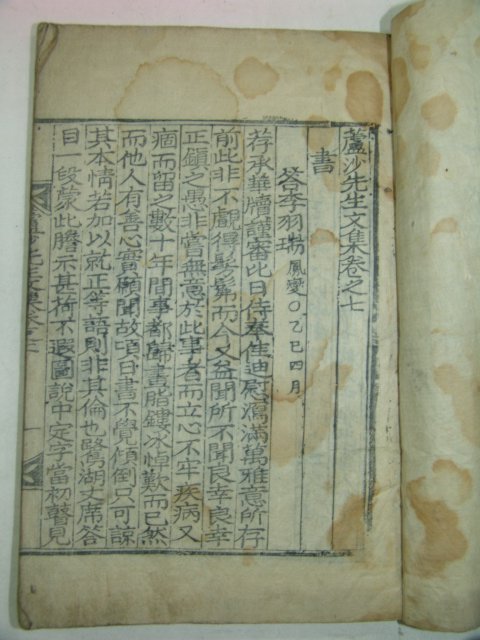 蘆沙先生文集卷之七
書
答李羽瑞 鳳燮○乙巳四月
荐承華牘謹審比日侍奉佳迪慰瀉滿萬雅意所存
前此非不覰得髣髴而今又益聞所不聞良幸良幸
正鎭之愚非嘗無意於此事者而立心不牢疾病又
痼而留之數十年間事都歸畫脂鏤冰悼歎而已然
而他人有善心實願聞故頃日書不覺傾倒只可諒
其本情若加以就正等語則非其倫也鷺湖丈席答
目一段蒙此謄示甚荷不遐圖說中定字當初瞥見